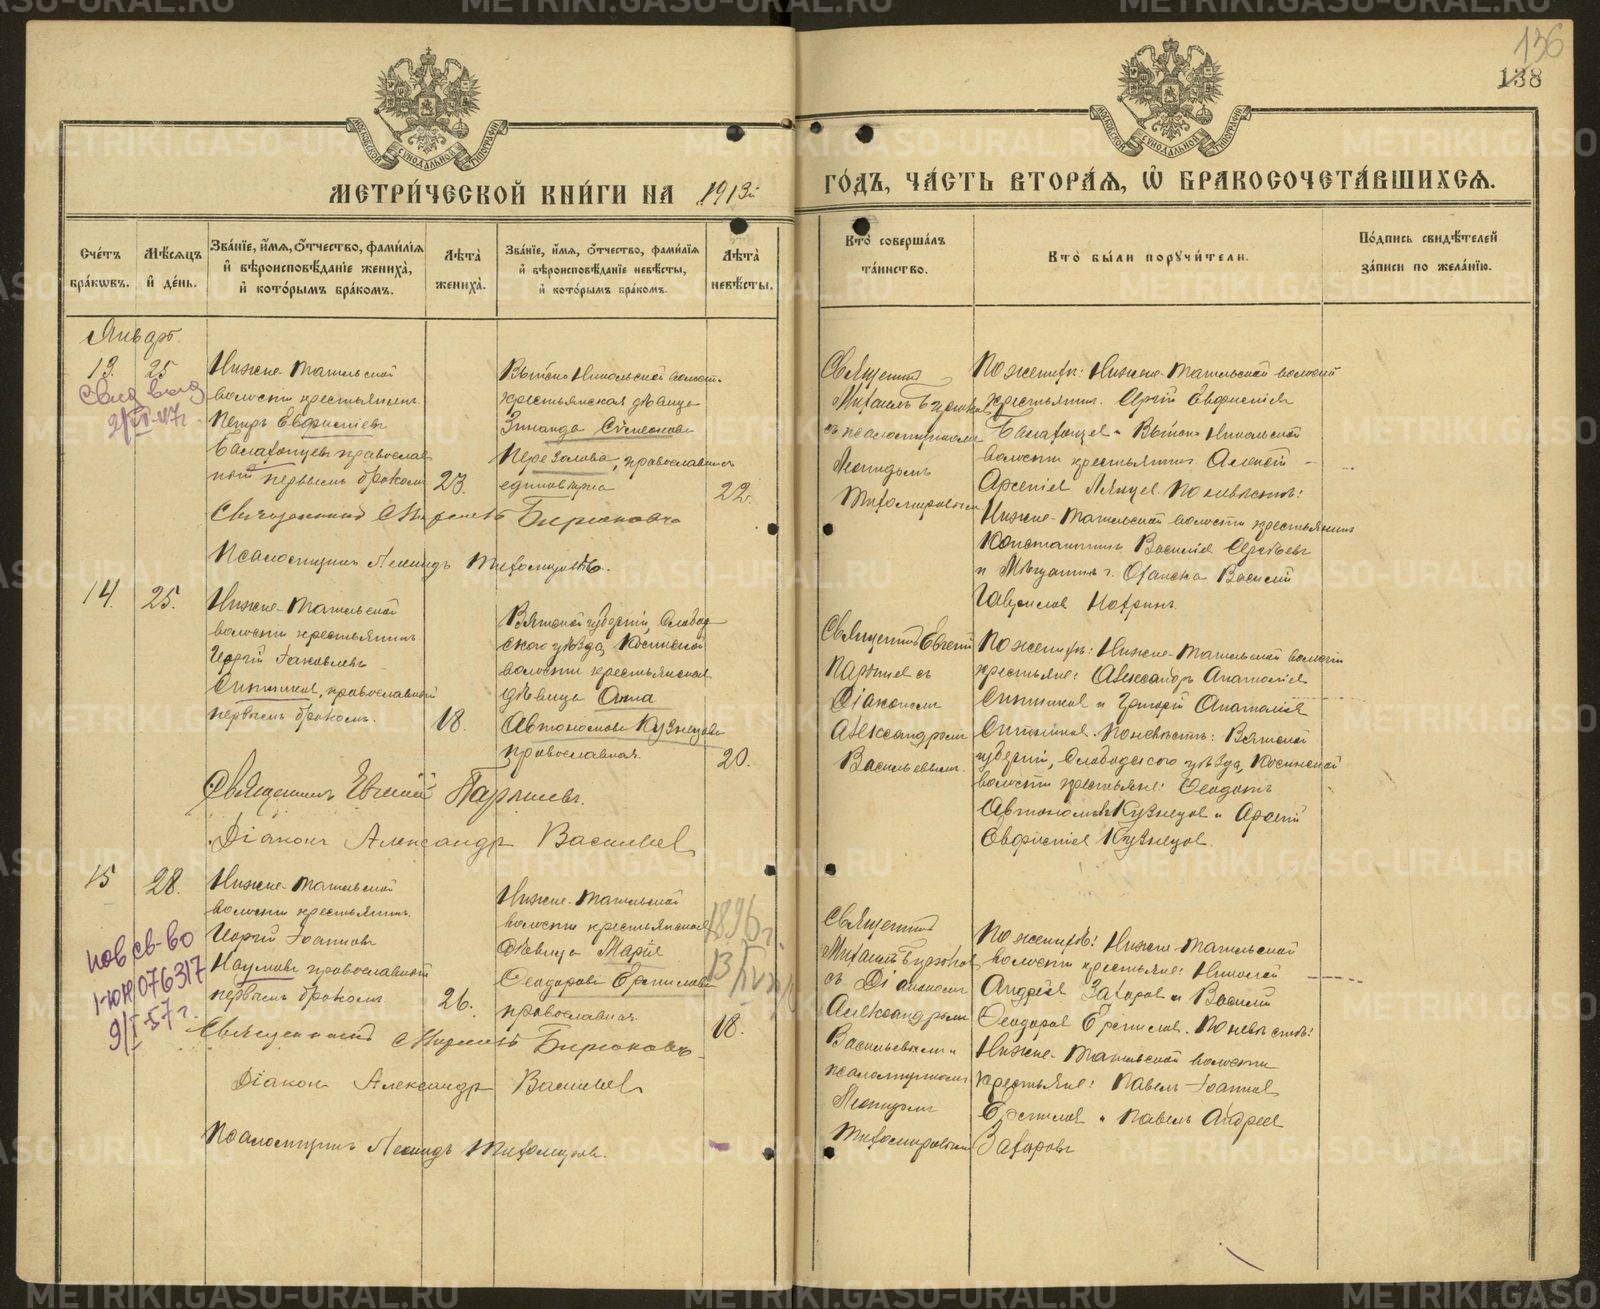 136
138
МЕТРИ́ЧЕСКОЙ КНИ́ГИ НА 1913й
ГО́ДЪ, ЧА́СТЬ ВТОРА́Я, Ѡ БРАКОСОЧЕТА́ВШИХСЯ.
Сче́тъ бра́кѡвъ.
Мѣ́сяцъ и҆ де́нь.
Зва́нїе, и҆́мя, ѻ҆́тчество, фами́лїя и҆ вѣроисповѣ́данїе жениха̀, и҆ кото́рымъ бра́комъ.
Лѣ́та жениха̀.
Зва́нїе, и҆́мя, ѻ҆́тчество, фами́лїя и҆ вѣроисповѣ́данїе невѣ́сты, и҆ кото́рымъ бра́комъ.
Лѣ́та невѣ́сты.
Кто̀ соверша́лъ та́инство.
Кто̀ бы́ли поручи́тели.
По́дпись свидѣ́телей за́писи по жела́нїю.
Январь
13. 25
Нижне-Тагильской
волости крестьянинъ
Петръ Евфиміевъ
православ
ный первымъ бракомъ
23.
Выйско Никольской волост.
крестьянская дѣвица
Зинаида Симеонова
Перезолова, православная
единовѣрка
22.
Священникъ
Михаилъ Бирюковъ
съ псаломщикомъ
Леонидомъ
Тихомировымъ
По женихѣ: Нижне-Тагильской волости
крестьянин. Сергій Евфиміев
Выйско Никольской
волости крестьянин Алексѣй
Арсеніев По невѣстѣ:
Нижне-Тагильской волости крестьянин
Константинъ Василіев Сергѣевъ
и Мѣщанинъ г. Оханска Василій
Гаврилов
Священникъ Михаилъ Бирюковъ
Псаломщикъ Леонидъ Тихомировъ.
14. 25.
Нижне-Тагильской
волости крестьянинъ
Георгій Іаковлевъ
Ситников, православный
первымъ бракомъ.
18.
Вятской губерніи, Слобод
скаго уѣзда, Косинской
волости крестьянская
дѣвица Анна
Автономова Кузнецова
православная.
20.
Священникъ Евгеній
съ
Діакономъ
Александромъ
Васильевымъ.
По женихѣ: Нижне-Тагильской волости
крестьяне: Александръ Анатоліев
Ситников и Григорій Анатоліев
Ситников. По невѣстѣ: Вятской
губерніи, Слободскаго уѣзда, Косинской
волости крестьяне: Ѳеодотъ
Автономовъ Кузнецов и Арсеній
Евфиміев Кузнецов.
Священникъ Евгеній
Діаконъ Александр Васильев
15 28.
Нижне-Тагильской
волости крестьянинъ
Георгій Іоанновъ
Наумовъ православный
первымъ бракомъ
26.
Нижне-Тагильской
волости крестьянская
дѣвица Марія
Ѳеодорова Ермилова
православная.
18.
1896 г.
нов св-во
076317
9/I-57 г.
Священникъ
Михаилъ Бирюков
съ Діакономъ
Александромъ
Васильевымъ и
псаломщикомъ
Леонидомъ
Тихомировымъ
По женихѣ: Нижне-Тагильской
волости крестьяне: Николай
Андреев Захаров и Василій
Ѳеодоров Ермилов. По невѣстѣ:
Нижне-Тагильской волости
крестьяне: Павелъ Іоаннов
Ермилов и Павелъ Андреев
Захаровъ
Священникъ Михаилъ Бирюковъ
Діаконъ Александр Васильев
Псаломщикъ Леонидъ Тихомировъ.
METRIKI.GASO-URAL.RU